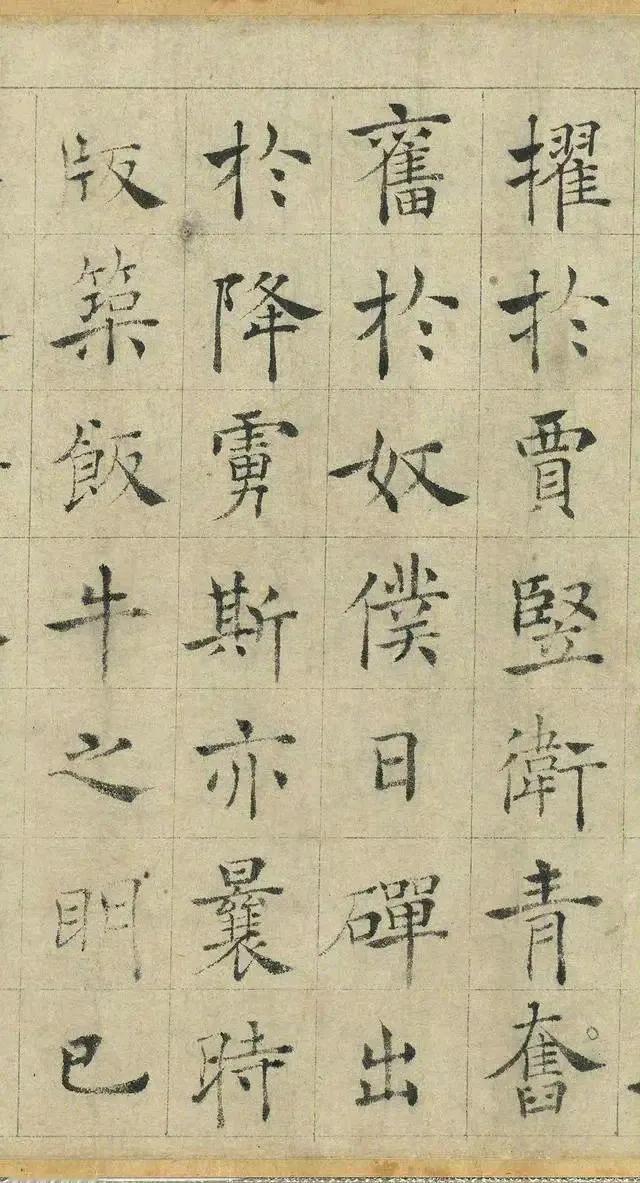 擢於賈豎衛青奮
奮於奴僕日磾出
於降虜斯亦曩時
版築飯牛之明已